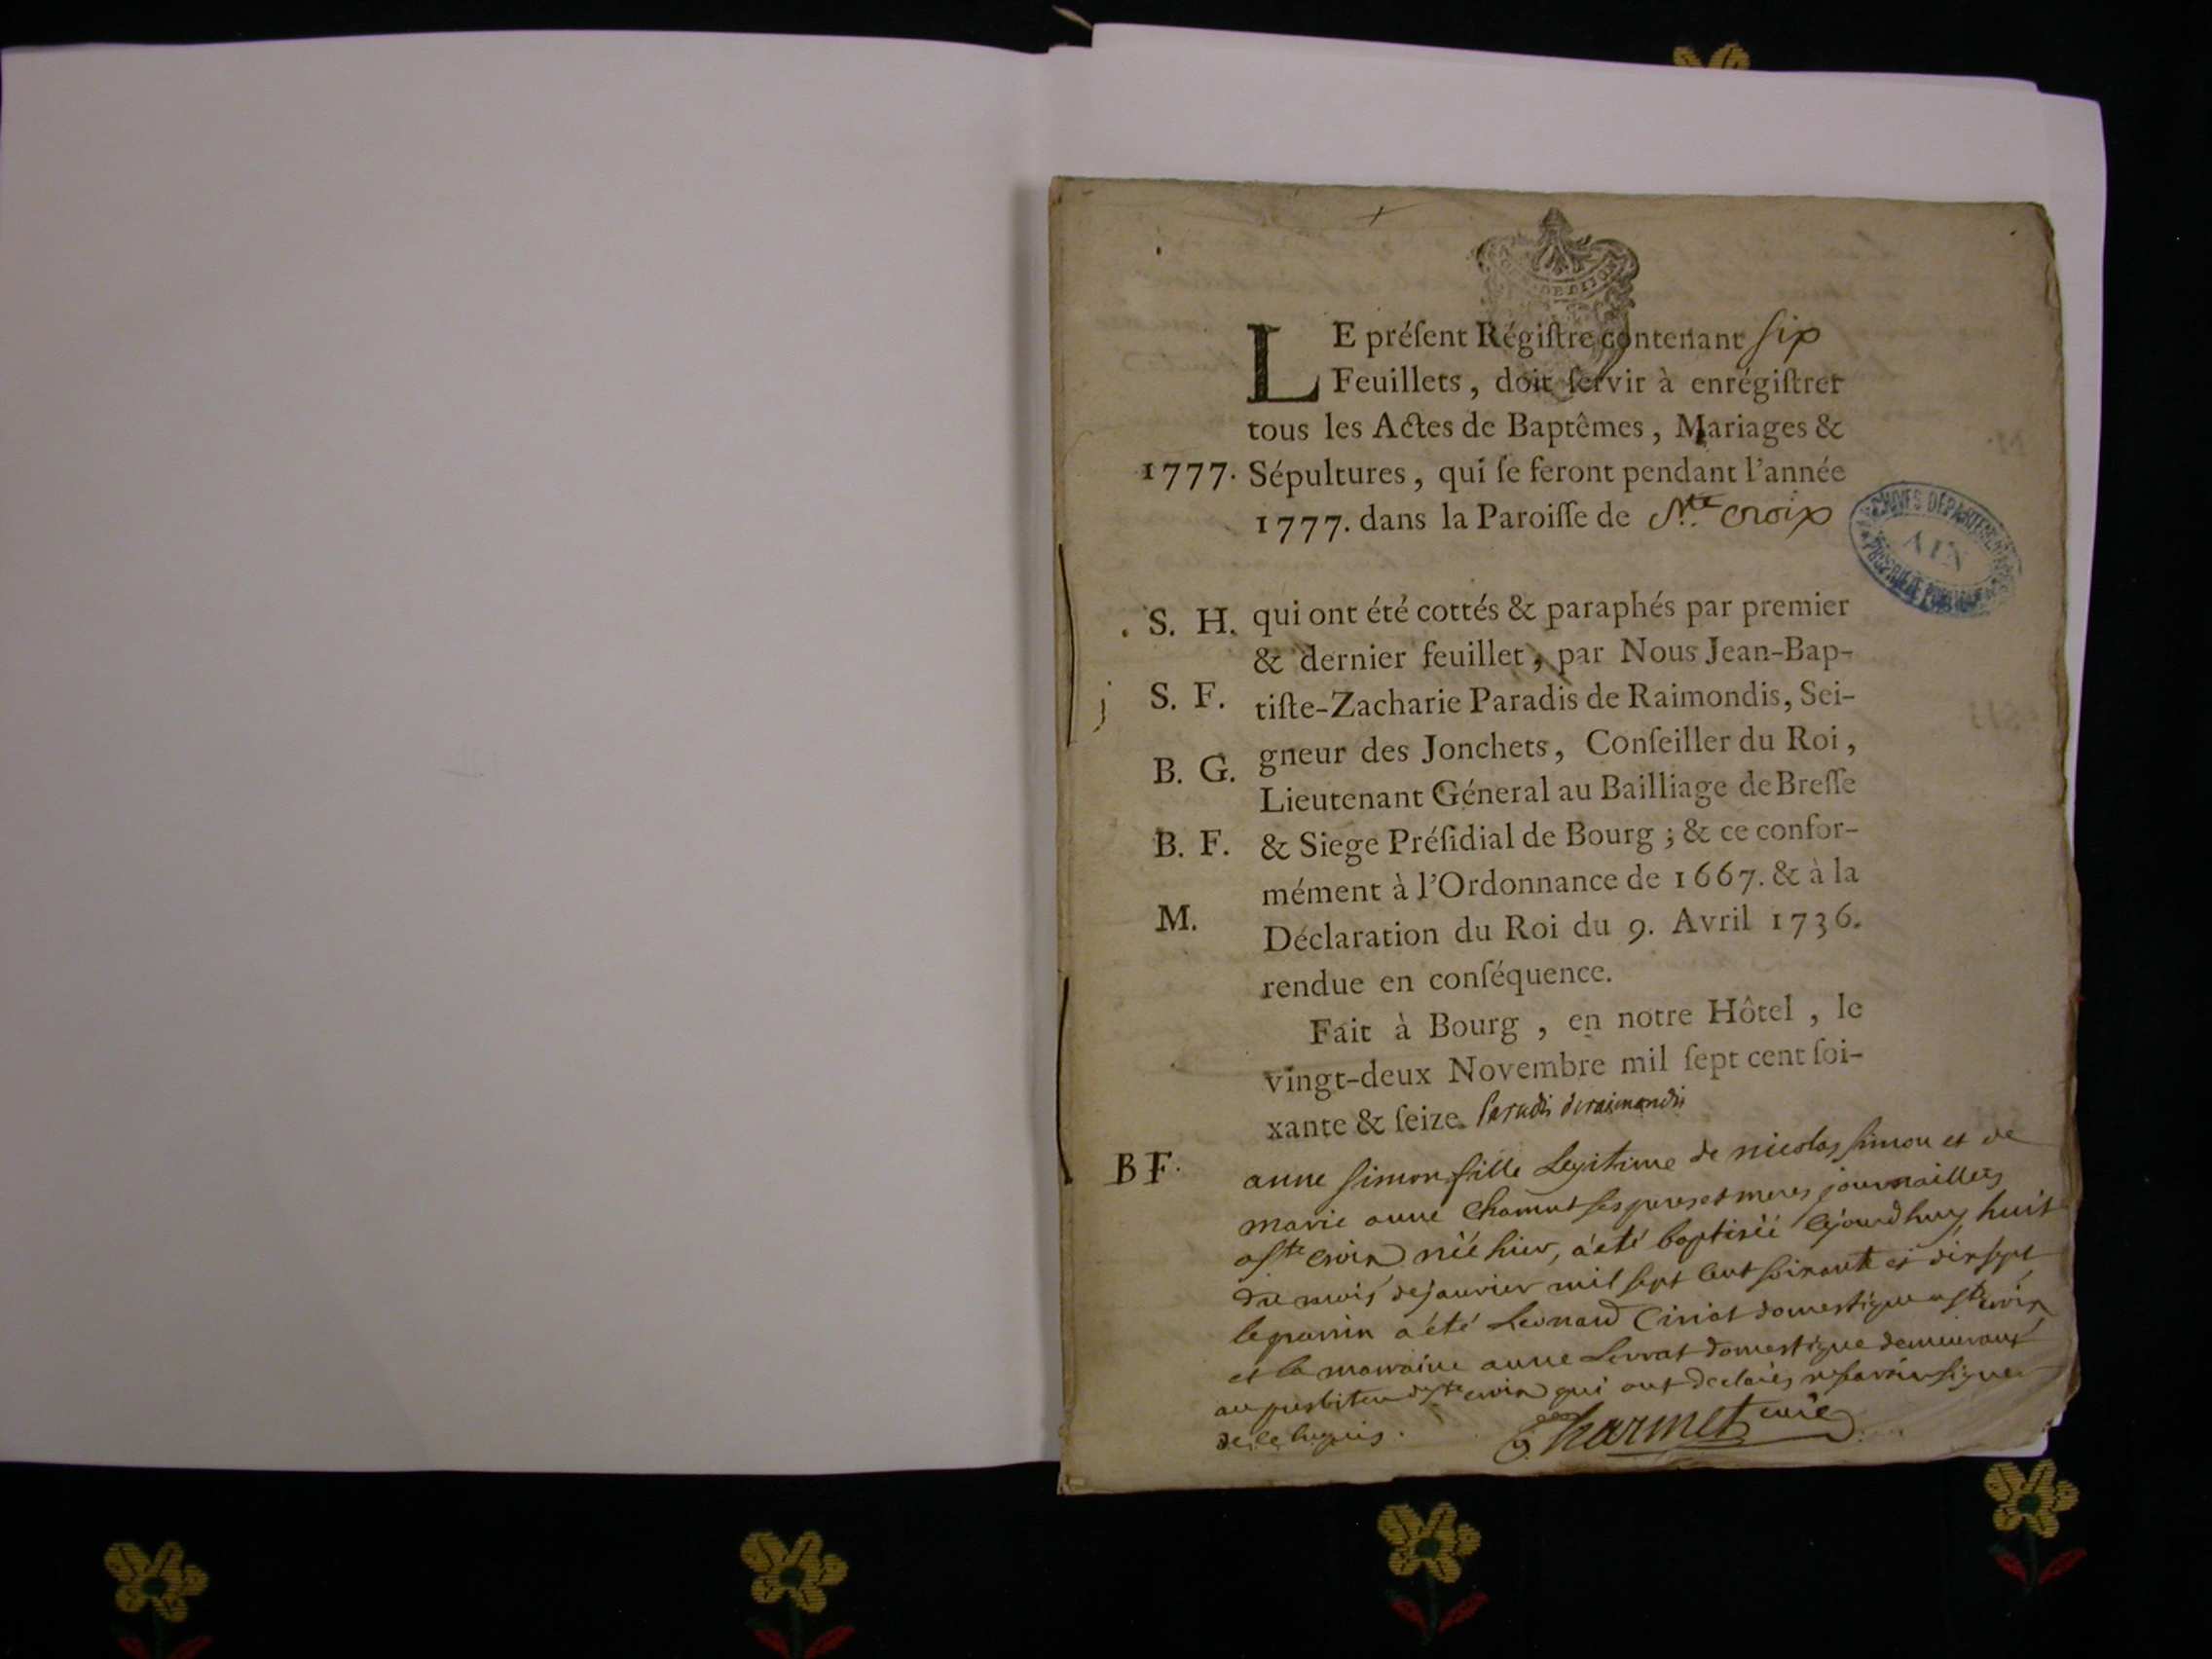 LE préſent Régiſtre contenant ſix
Feuillets, doit ſervir à enrégiſtrer
tous les Actes de Baptêmes, Mariages &
1777. Sépultures, qui ſe feront pendant l'année
1777. dans la Paroiſſe de Ste croix
ARCHIVES DEPARTEMENTALES
AIN
PROPRIETE PUBLIQUE
S. H. qui ont été cottés & paraphés par premier
& dernier feuillet, par Nous Jean-Bap-
S. F. tiſte-Zacharie Paradis de Raimondis, Sei-
B. G. gneur des Jonchets, Conſeiller du Roi,
Lieutenant Géneral au Bailliage de Breſſe
B. F. & Siege Préſidial de Bourg ; & ce confor-
mément à l'Ordonnance de 1667. & à la
M. Déclaration du Roi du 9. Avril 1736.
rendue en conſéquence.
Fait à Bourg, en notre Hôtel, le
vingt-deux Novembre mil ſept cent ſoi-
xante & ſeize. Paradis deraimondis
BF. anne ſimon fille Legitime de nicolas ſimon et de
marie anne ſes peres et meres journailliers
a ſte croix néé hier, a été baptiséé cejourdhuy huit
du mois de janvier mil ſept cent ſoixante et dix ſept
le parrin a été Leonard domestique a ſte croix
et la marraine anne Levrat domestique demeurant
au de ſte croix qui ont declarés ne ſavoir ſigner
de ce
Charmet curé